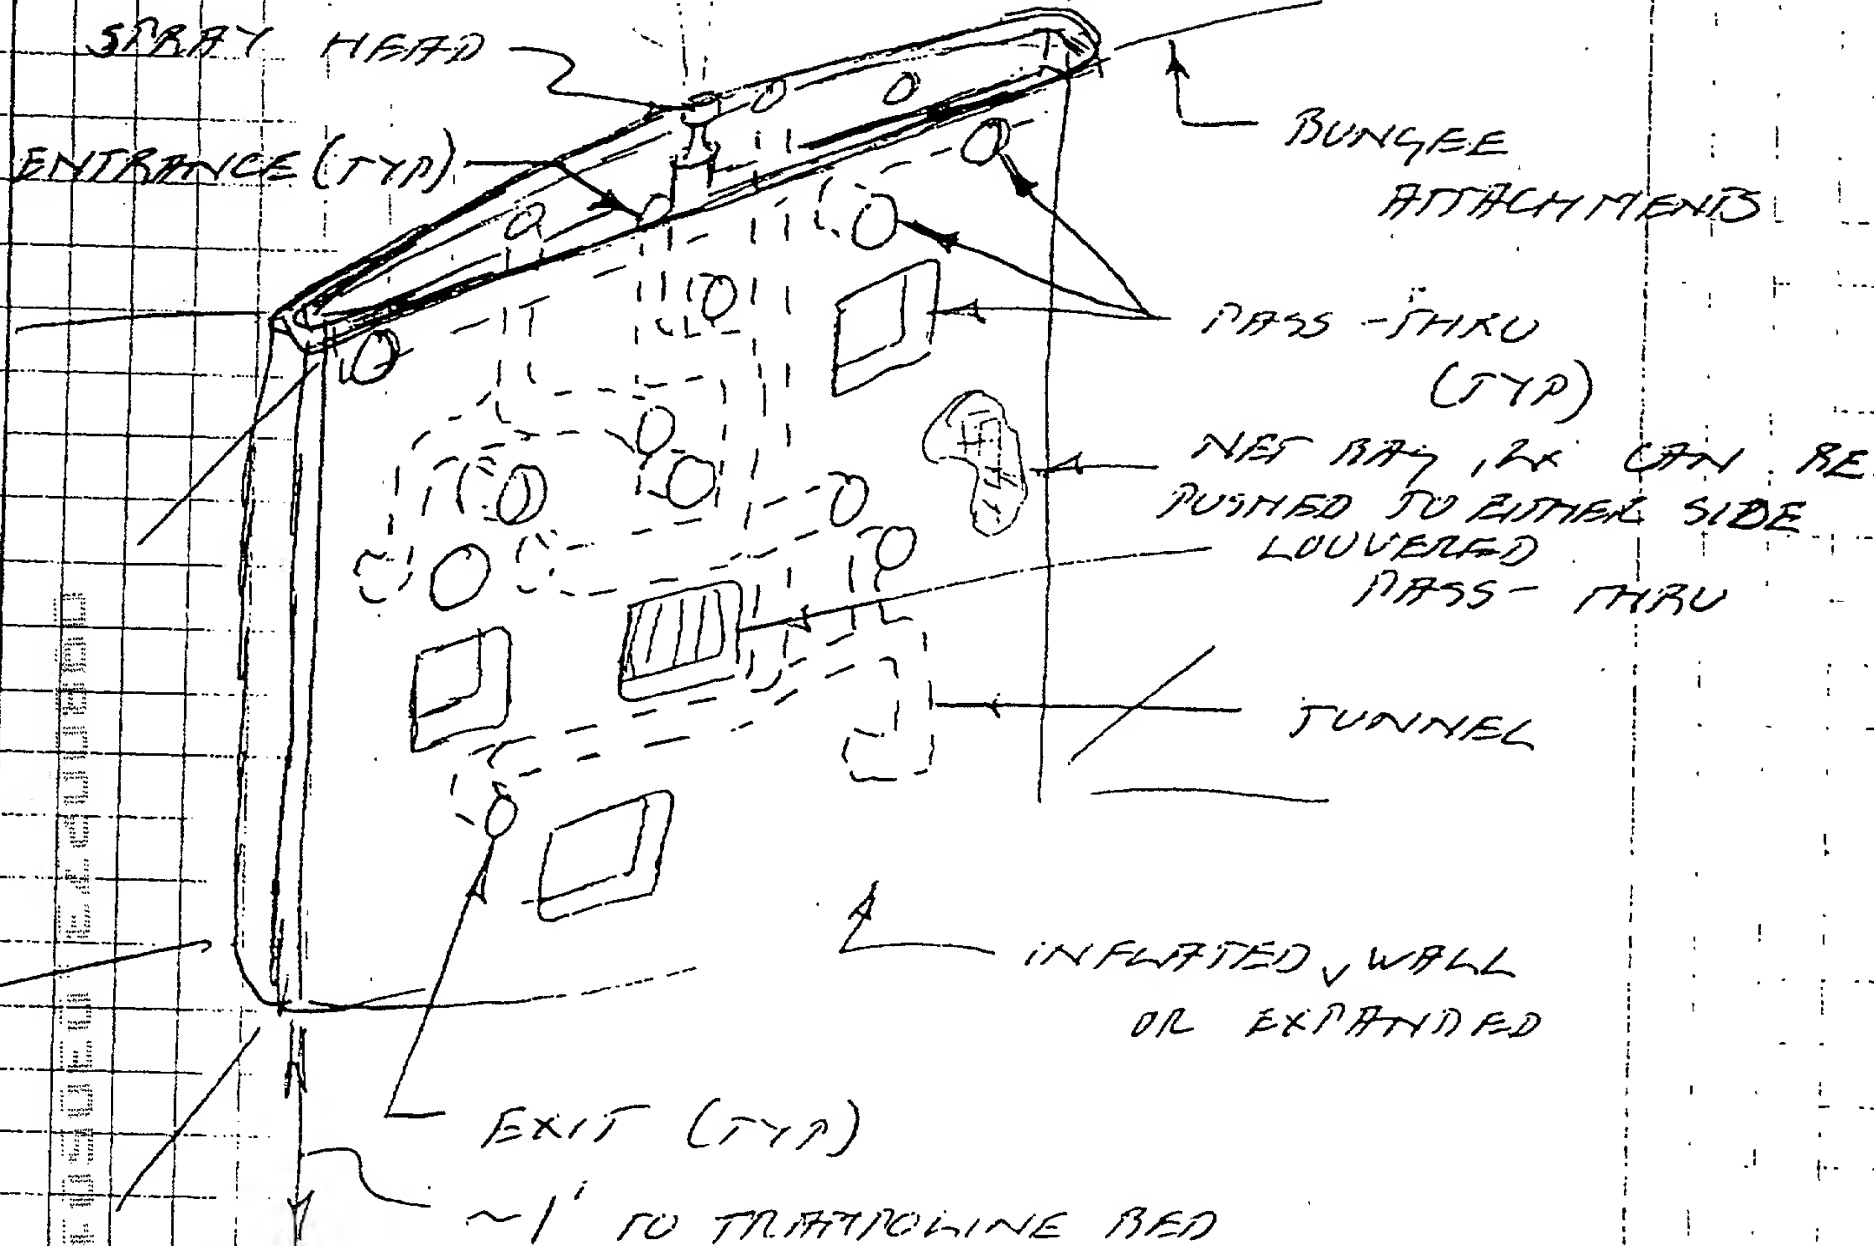 SPRAY HEAD
ENTRANCE (TYP)
BUNGEE
ATTACHMENTS
PASS-THRU
(TYP)
NET BAG, CAN BE
PUSHED TO EITHER SIDE
LOUVERED
PASS-THRU
TUNNEL
INFLATED ✓ WALL
OR EXPANDED
EXIT (TYP)
~1' TO TRAMPOLINE BED